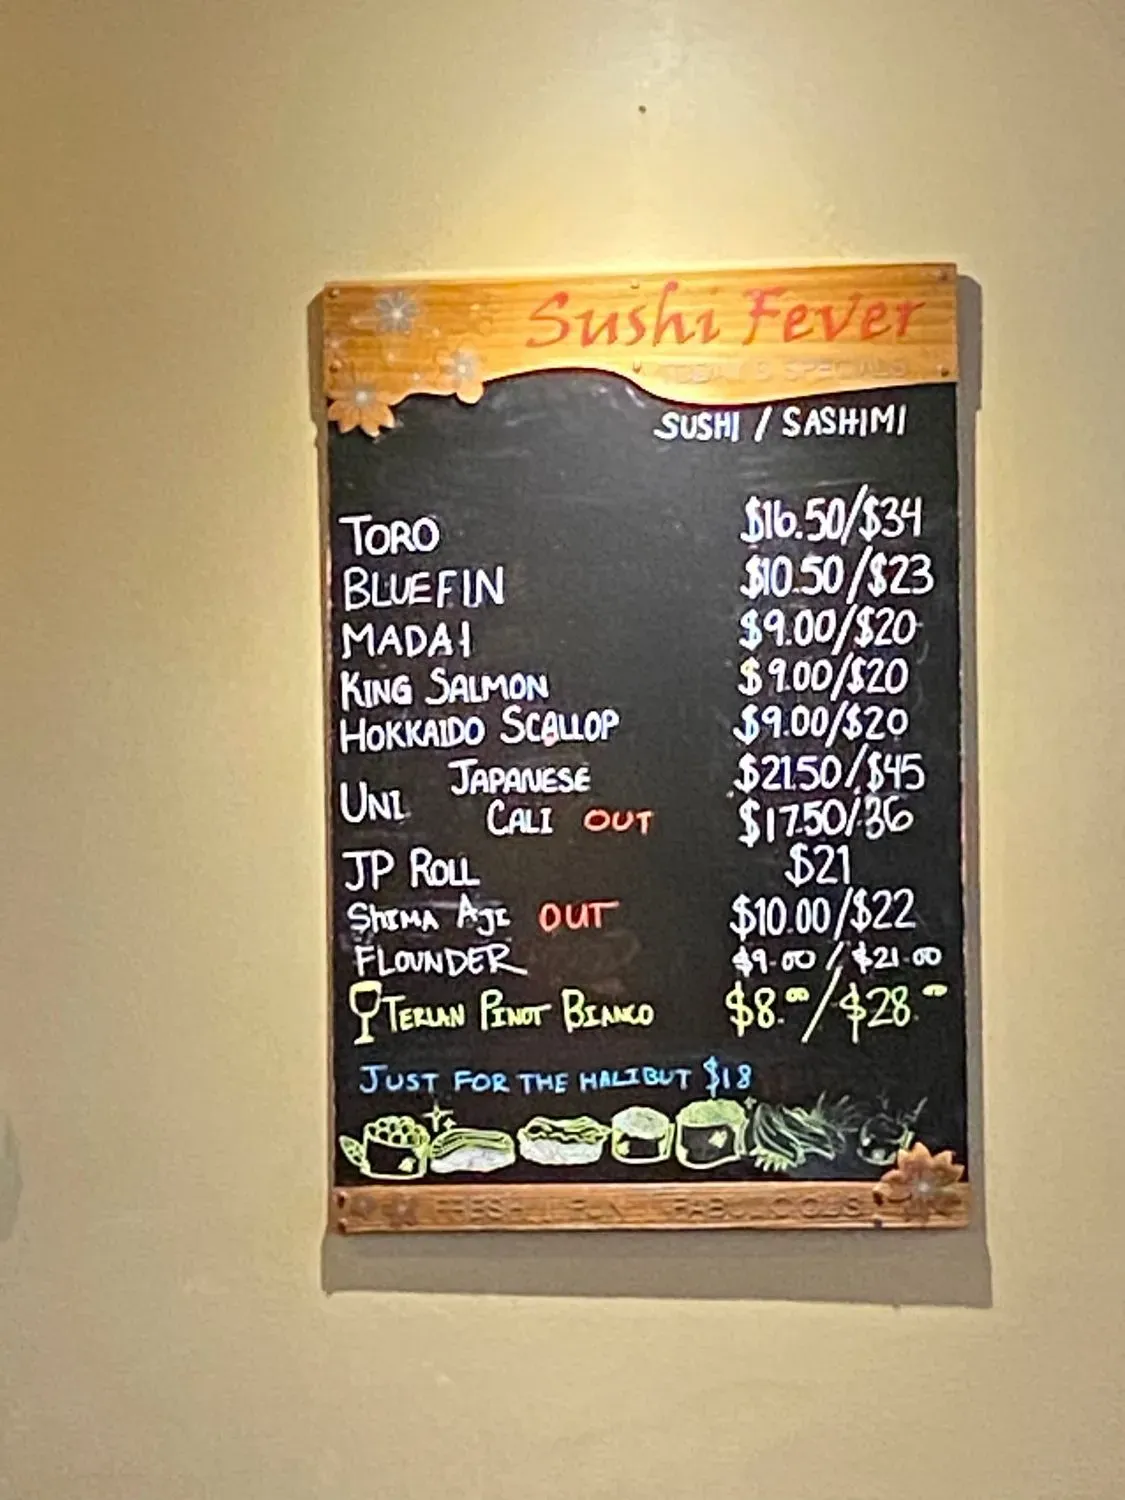 Sushi Fever
TODAY'S SPECIALS
SUSHI / SASHIMI
TORO $16.50/$34
BLUEFIN $10.50/$23
MADAI $9.00/$20
KING SALMON $9.00/$20
HOKKAIDO SCALLOP $9.00/$20
UNI JAPANESE $21.50/$45
CALI OUT $17.50/36
JP ROLL $21
SHIMA AJI OUT $10.00/$22
FLOUNDER $9.00/$21.00
TERLAN PINOT BIANCO $8.00/$28.00
JUST FOR THE HALIBUT $18
FRESH FUN FABULICIOUS